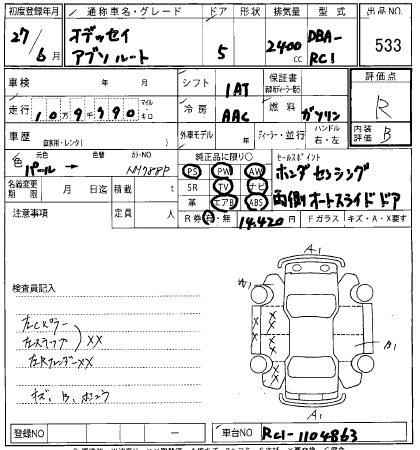 初度登録年月 通称車名・グレード ドア 形状 排気量 型式 出品NO.
27/6月 オデッセイ アブソルート 5 2400cc DBA-RC1 533
車検 年 月 シフト 1AT 保証書 評価点
R
走行 10万9千990 マイル キロ 冷房 AAC 燃料 ガソリン
内装評価 B
車歴 自家用・レンタ( ) 外車モデル 年 ディーラー・並行 ハンドル 右・左
色 元色 パール 色替 カラーNO NH788P 純正品に限り○ セールスポイント
PS PW AW ホンダセンシング
名義変更期限 月 日迄 積載 t SR TV ナビ 両側オートスライドドア
注意事項 定員 人 革 エアB ABS
R券 有・無 14,420円 Fガラス キズ・A・X要す
A1
検査員記入
W1
左Cピラー
左ステップ XX
左RフェンダーXX
B1
キズ、B、ホシュウ
A1
登録NO - 車台NO RC1-1104863